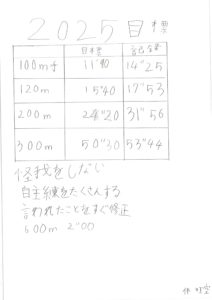 2025目標
目標 自己記録
100m 11"90 14"25
120m 15"40 17"53
200m 24"20 31"56
300m 50"30 53"44
怪我をしない
自主練をたくさんする
言われたことをすぐ修正
600m 2"00